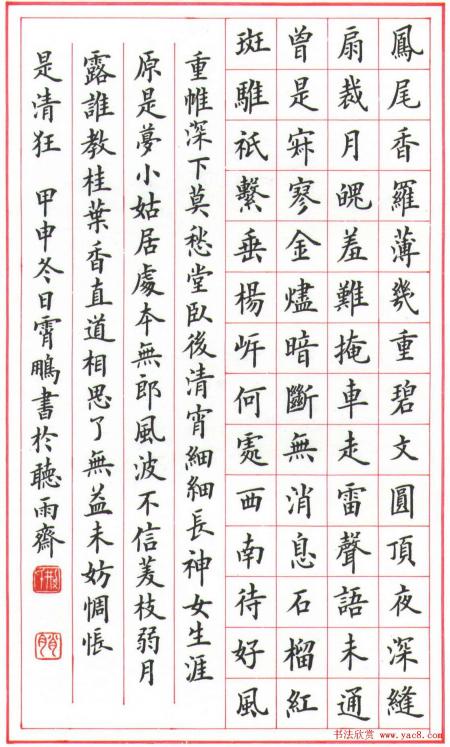 鳳尾香羅薄幾重碧文圓頂夜深縫
扇裁月魄羞難掩車走雷聲語未通
曾是寂寥金燼暗斷無消息石榴紅
斑騅祇繫垂楊岸何處西南待好風
重帷深下莫愁堂臥後清宵細細長神女生涯
原是夢小姑居處本無郎風波不信菱枝弱月
露誰教桂葉香直道相思了無益未妨惆悵
是清狂 甲申冬日霄鵬書於聽雨齋
书法欣赏
www.yac8.com